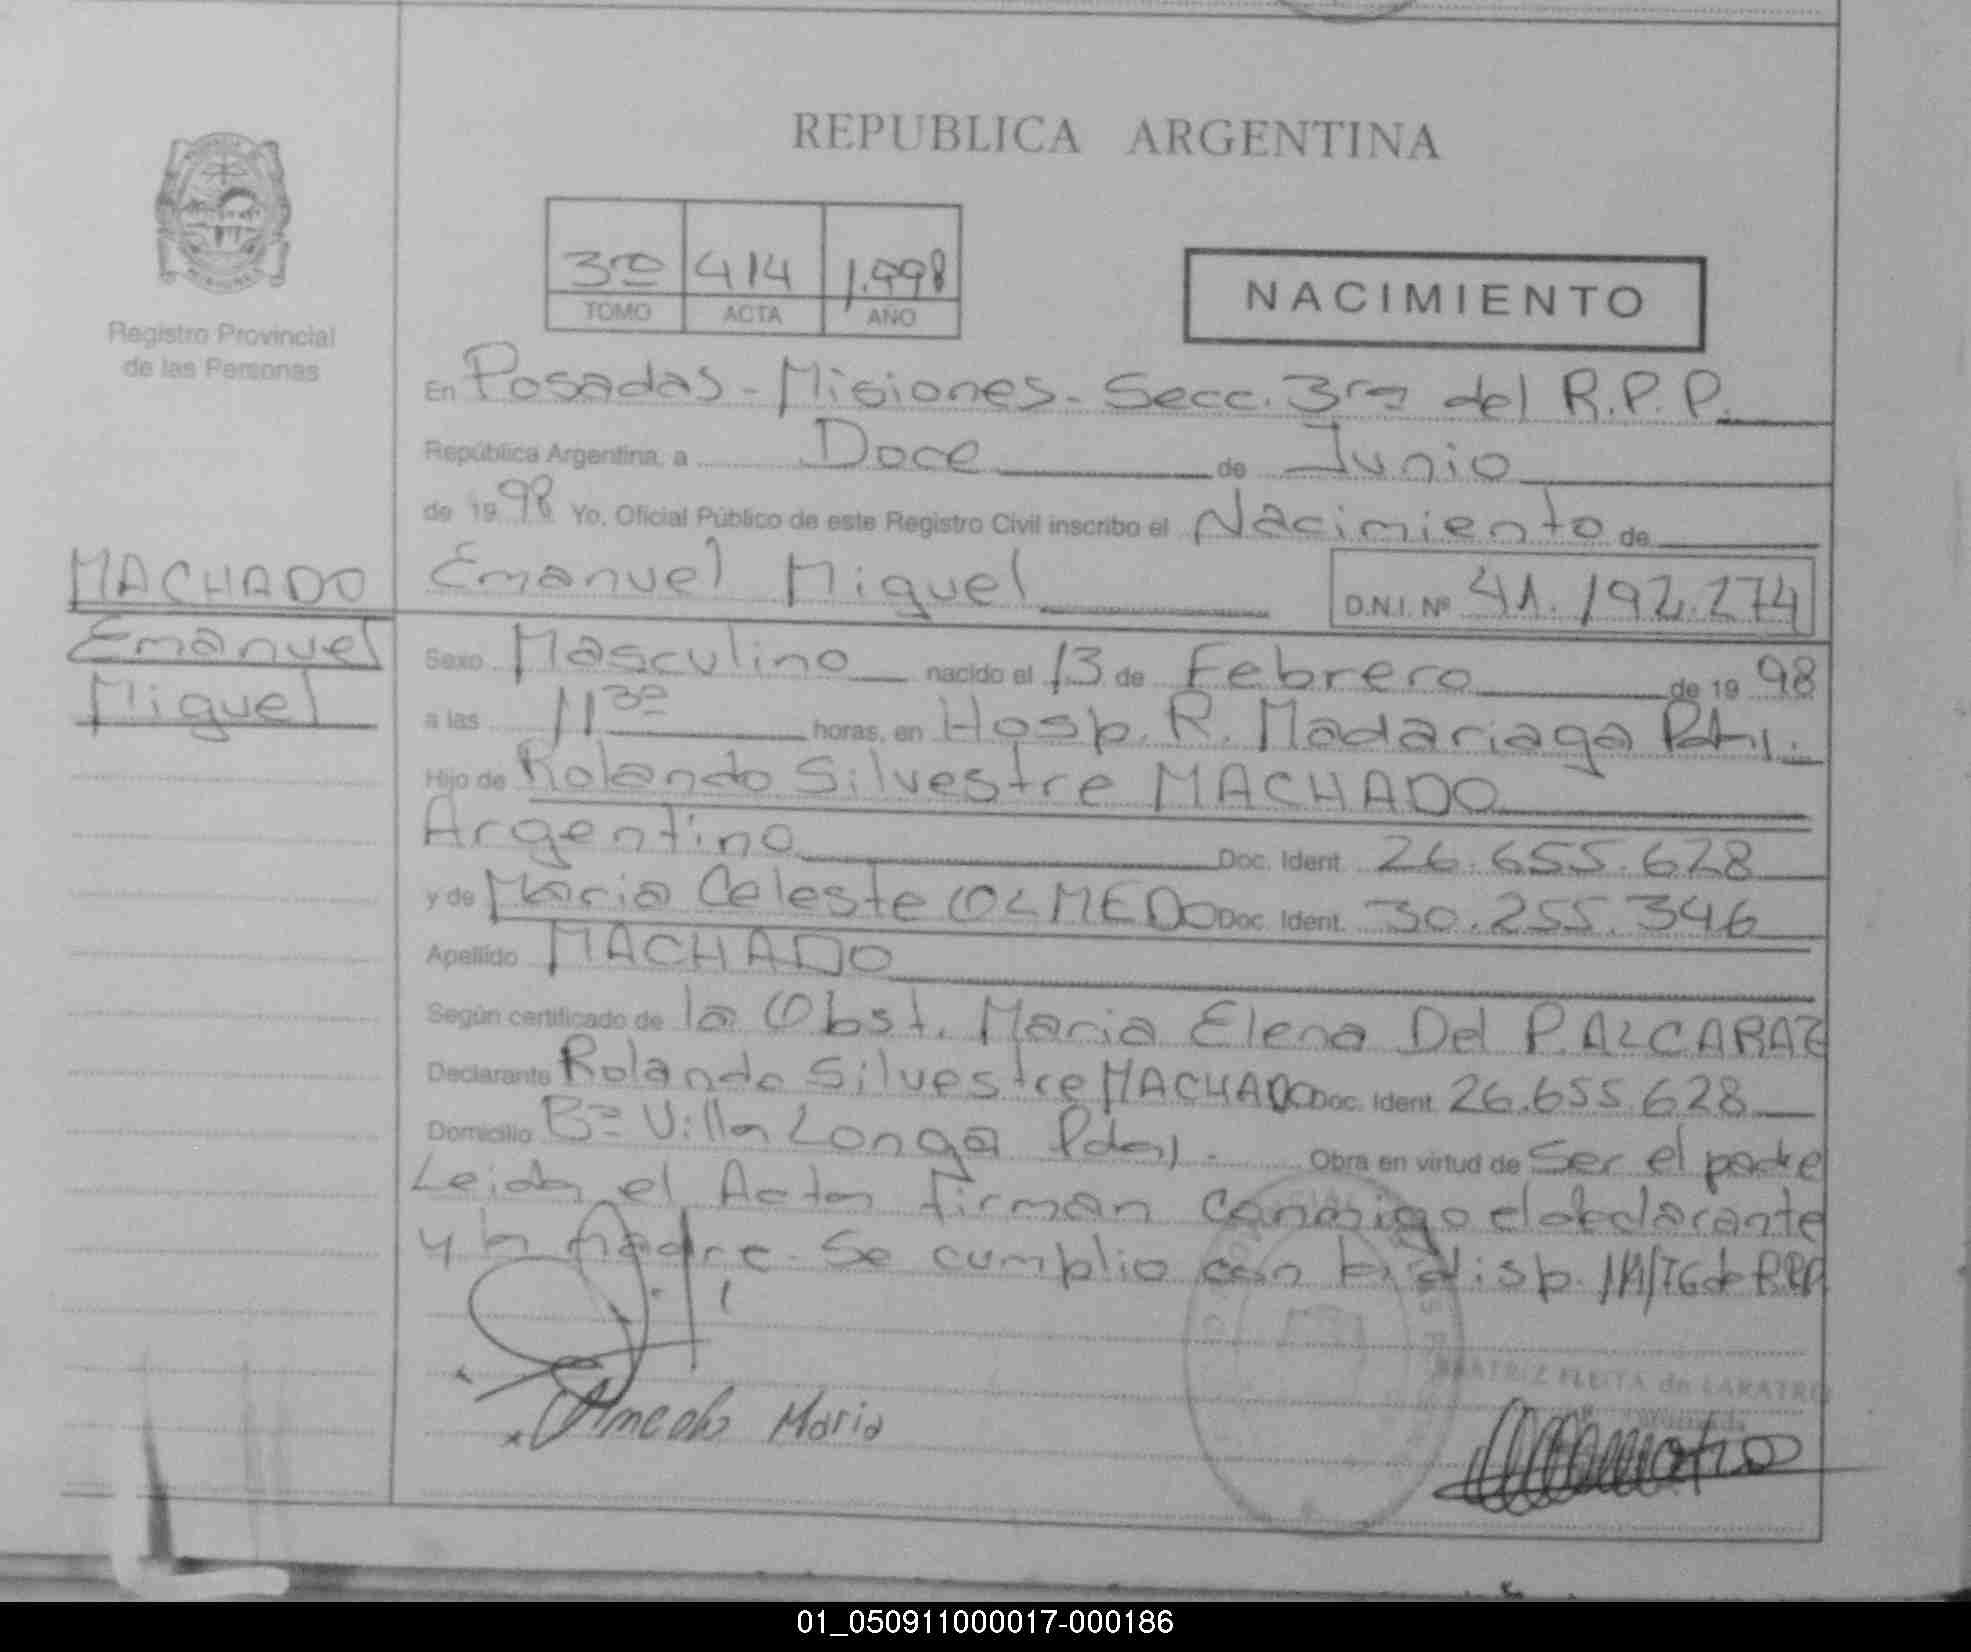 REPUBLICA ARGENTINA
3ro 414 1.998
TOMO ACTA AÑO
NACIMIENTO
Registro Provincial
de las Personas
En Posadas - Misiones - Secc. 3ra del R.P.P.
República Argentina, a Doce de Junio
de 1998 Yo, Oficial Público de este Registro Civil inscribo el Nacimiento de
MACHADO
Emanuel
Miguel
Emanuel Miguel D.N.I. Nº 41.192.274
Sexo Masculino nacido el 13 de Febrero de 1998
a las 11 30 horas, en Hosp. R. Madariaga
Hijo de Rolando Silvestre MACHADO
Argentino Doc. Ident. 26.655.628
y de Maria Celeste OLMEDO Doc. Ident. 30.255.346
Apellido MACHADO
Según certificado de la Obst. Maria Elena Del P. ALCARAZ
Declarante Rolando Silvestre MACHADO Doc. Ident. 26.655.628
Domicilio Bº Villa Longa Obra en virtud de Ser el padre
Leida el Acta firman conmigo el declarante
y la Madre. Se cumplio con la disp. de R.P.P.
Olmedo Maria
BEATRIZ FLEITA de LARATRO
01_050911000017-000186